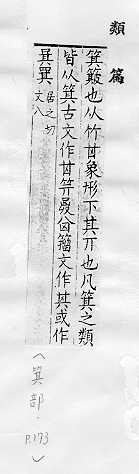 類篇
箕簸也从竹𠀠象形下其丌也凡箕之類
皆从箕古文作𠀠籀文作其或作
居之切
文八
(箕部.
P.173)